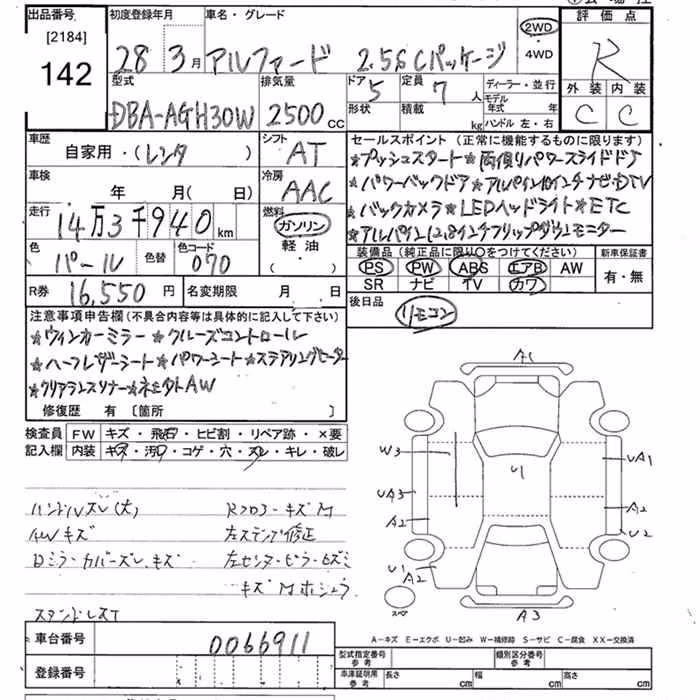 出品番号 初度登録年月 車名・グレード 評価点
[2184]
142
28 3月 アルファード 2.5S Cパッケージ 2WD・4WD R
型式 排気量 ドア 定員 ディーラー・並行 外装 内装
DBA-AGH30W 2500cc 5 7人 モデル年式 年 C C
形状 積載 kg ハンドル 左・右
車歴 シフト セールスポイント(正常に機能するものに限ります)
自家用・(レンタ) AT ★プッシュスタート★両側リパワースライドドア
車検 冷房 ★パワーバックドア★アルパイン10インチナビ・DTV
年 月(日) AAC ★バックカメラ★LEDヘッドライト★ETC
走行 燃料 ★アルパイン12.8インチフリップダウンモニター
14万3千940km ガソリン
軽油
(・)
色 色替 色コード 装備品(純正品に限り〇をつけてください) 新車保証書
パール 070 PS PW ABS エアB AW 有・無
SR ナビ TV カワ
R券 16,550円 名変期限 月 日 後日品
リモコン
注意事項申告欄(不具合内容等は具体的に記入して下さい)
★ウィンカーミラー★クルーズコントロール
★ハーフレザーシート★パワーシート★ステアリングヒーター
★クリアランスソナー★社外AW
修復歴 有〔箇所 〕
検査員記入欄 FW キズ・飛石・ヒビ割・リペア跡・×要
内装 キズ・汚れ・コゲ・穴・スレ・キレ・破レ
ハンドルスレ(大) Rフロアーキズ M
AWキズ 左ステップ修正
Dミラーカバーズレ、キズ 左センターピラーキズミ
キズ M ホシュウ
A1
W3 U UA1
UA3 A2
A2 U2
U1 A2
スペア
A3
A-キズ E-エクボ U-凹み W-補修跡 S-サビ C-腐食 XX-交換済
車台番号 0066911
型式指定番号 参考 類別区分番号 参考
登録番号 車庫証明用 参考 長さ cm 幅 cm 高さ cm